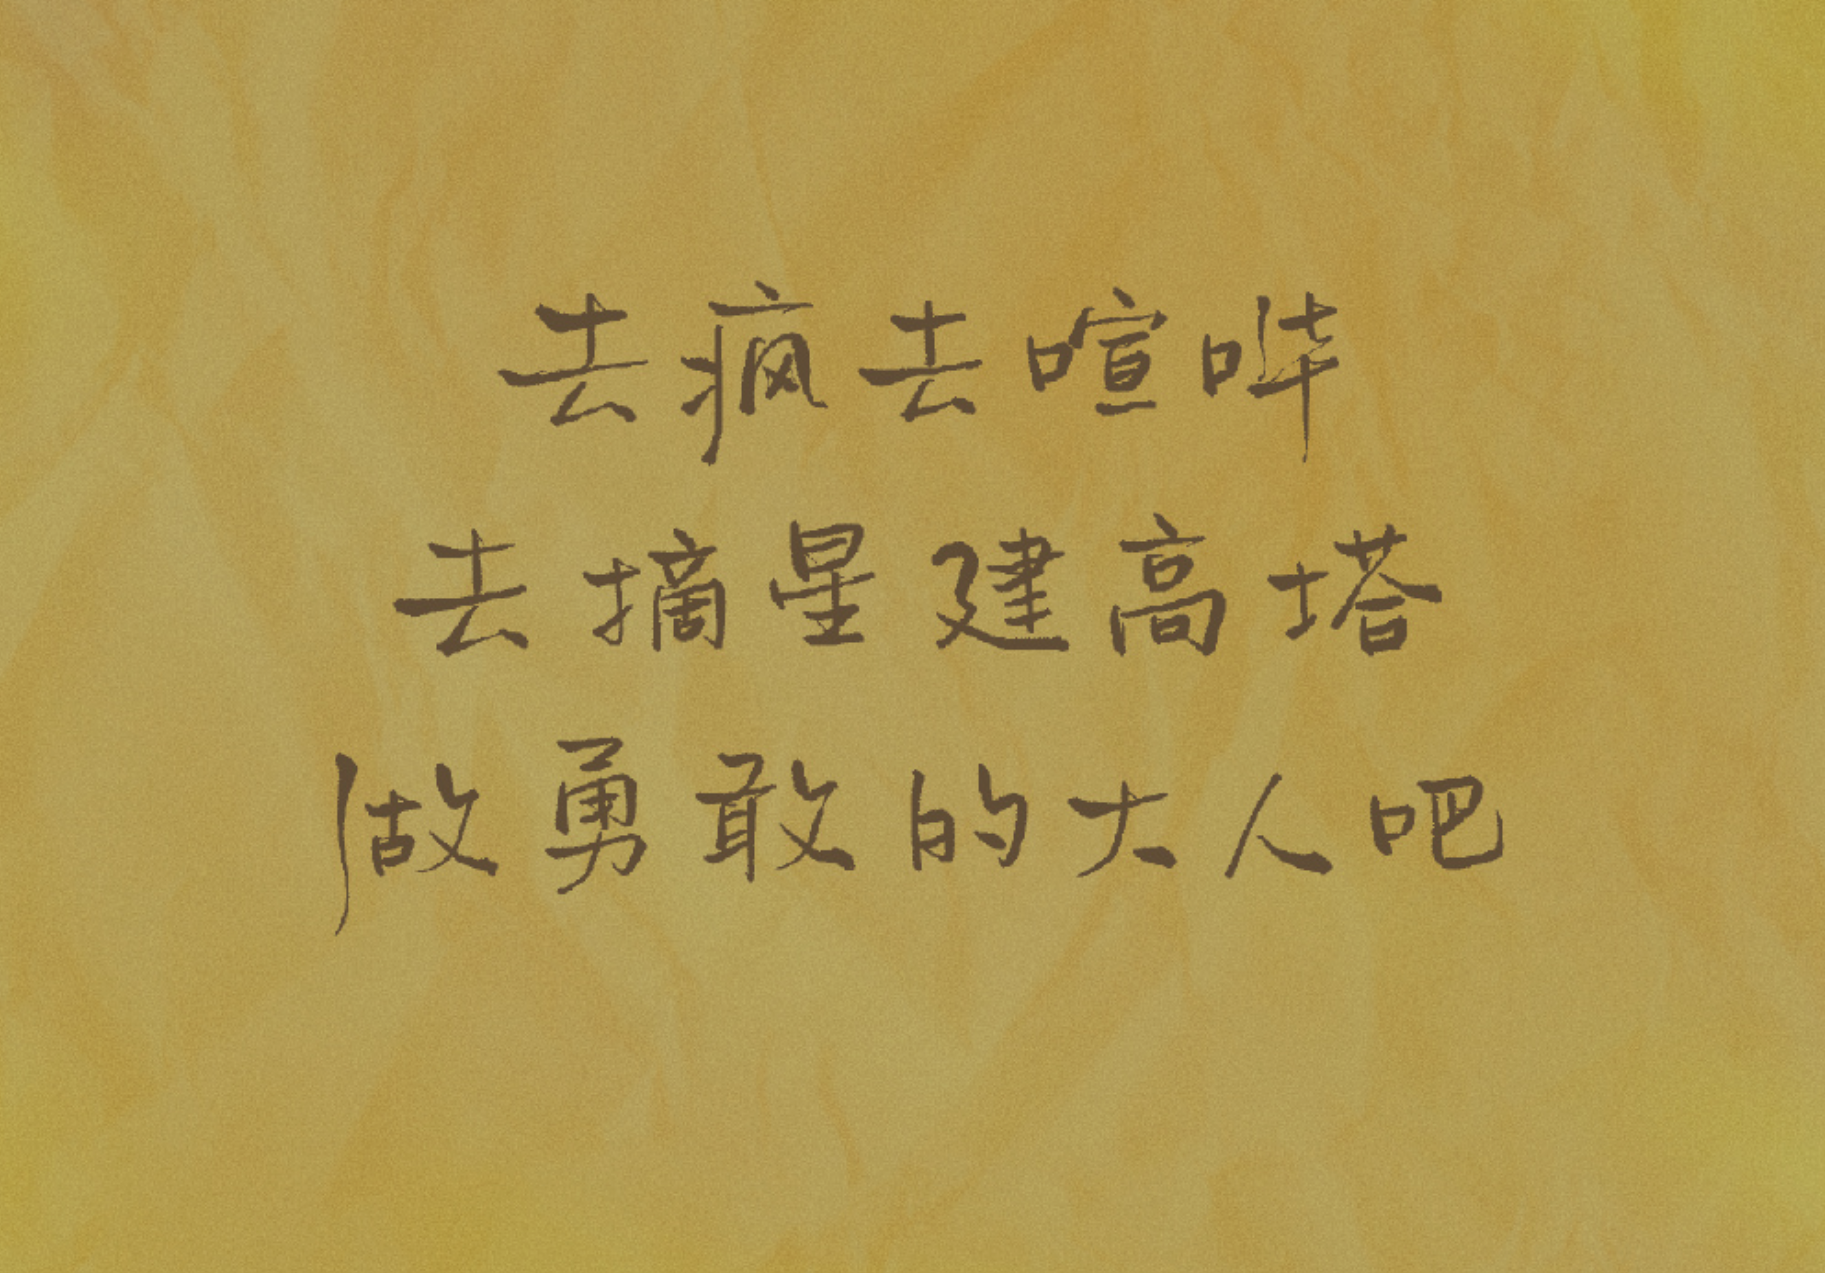 去疯去喧哗
去摘星建高塔
做勇敢的大人吧